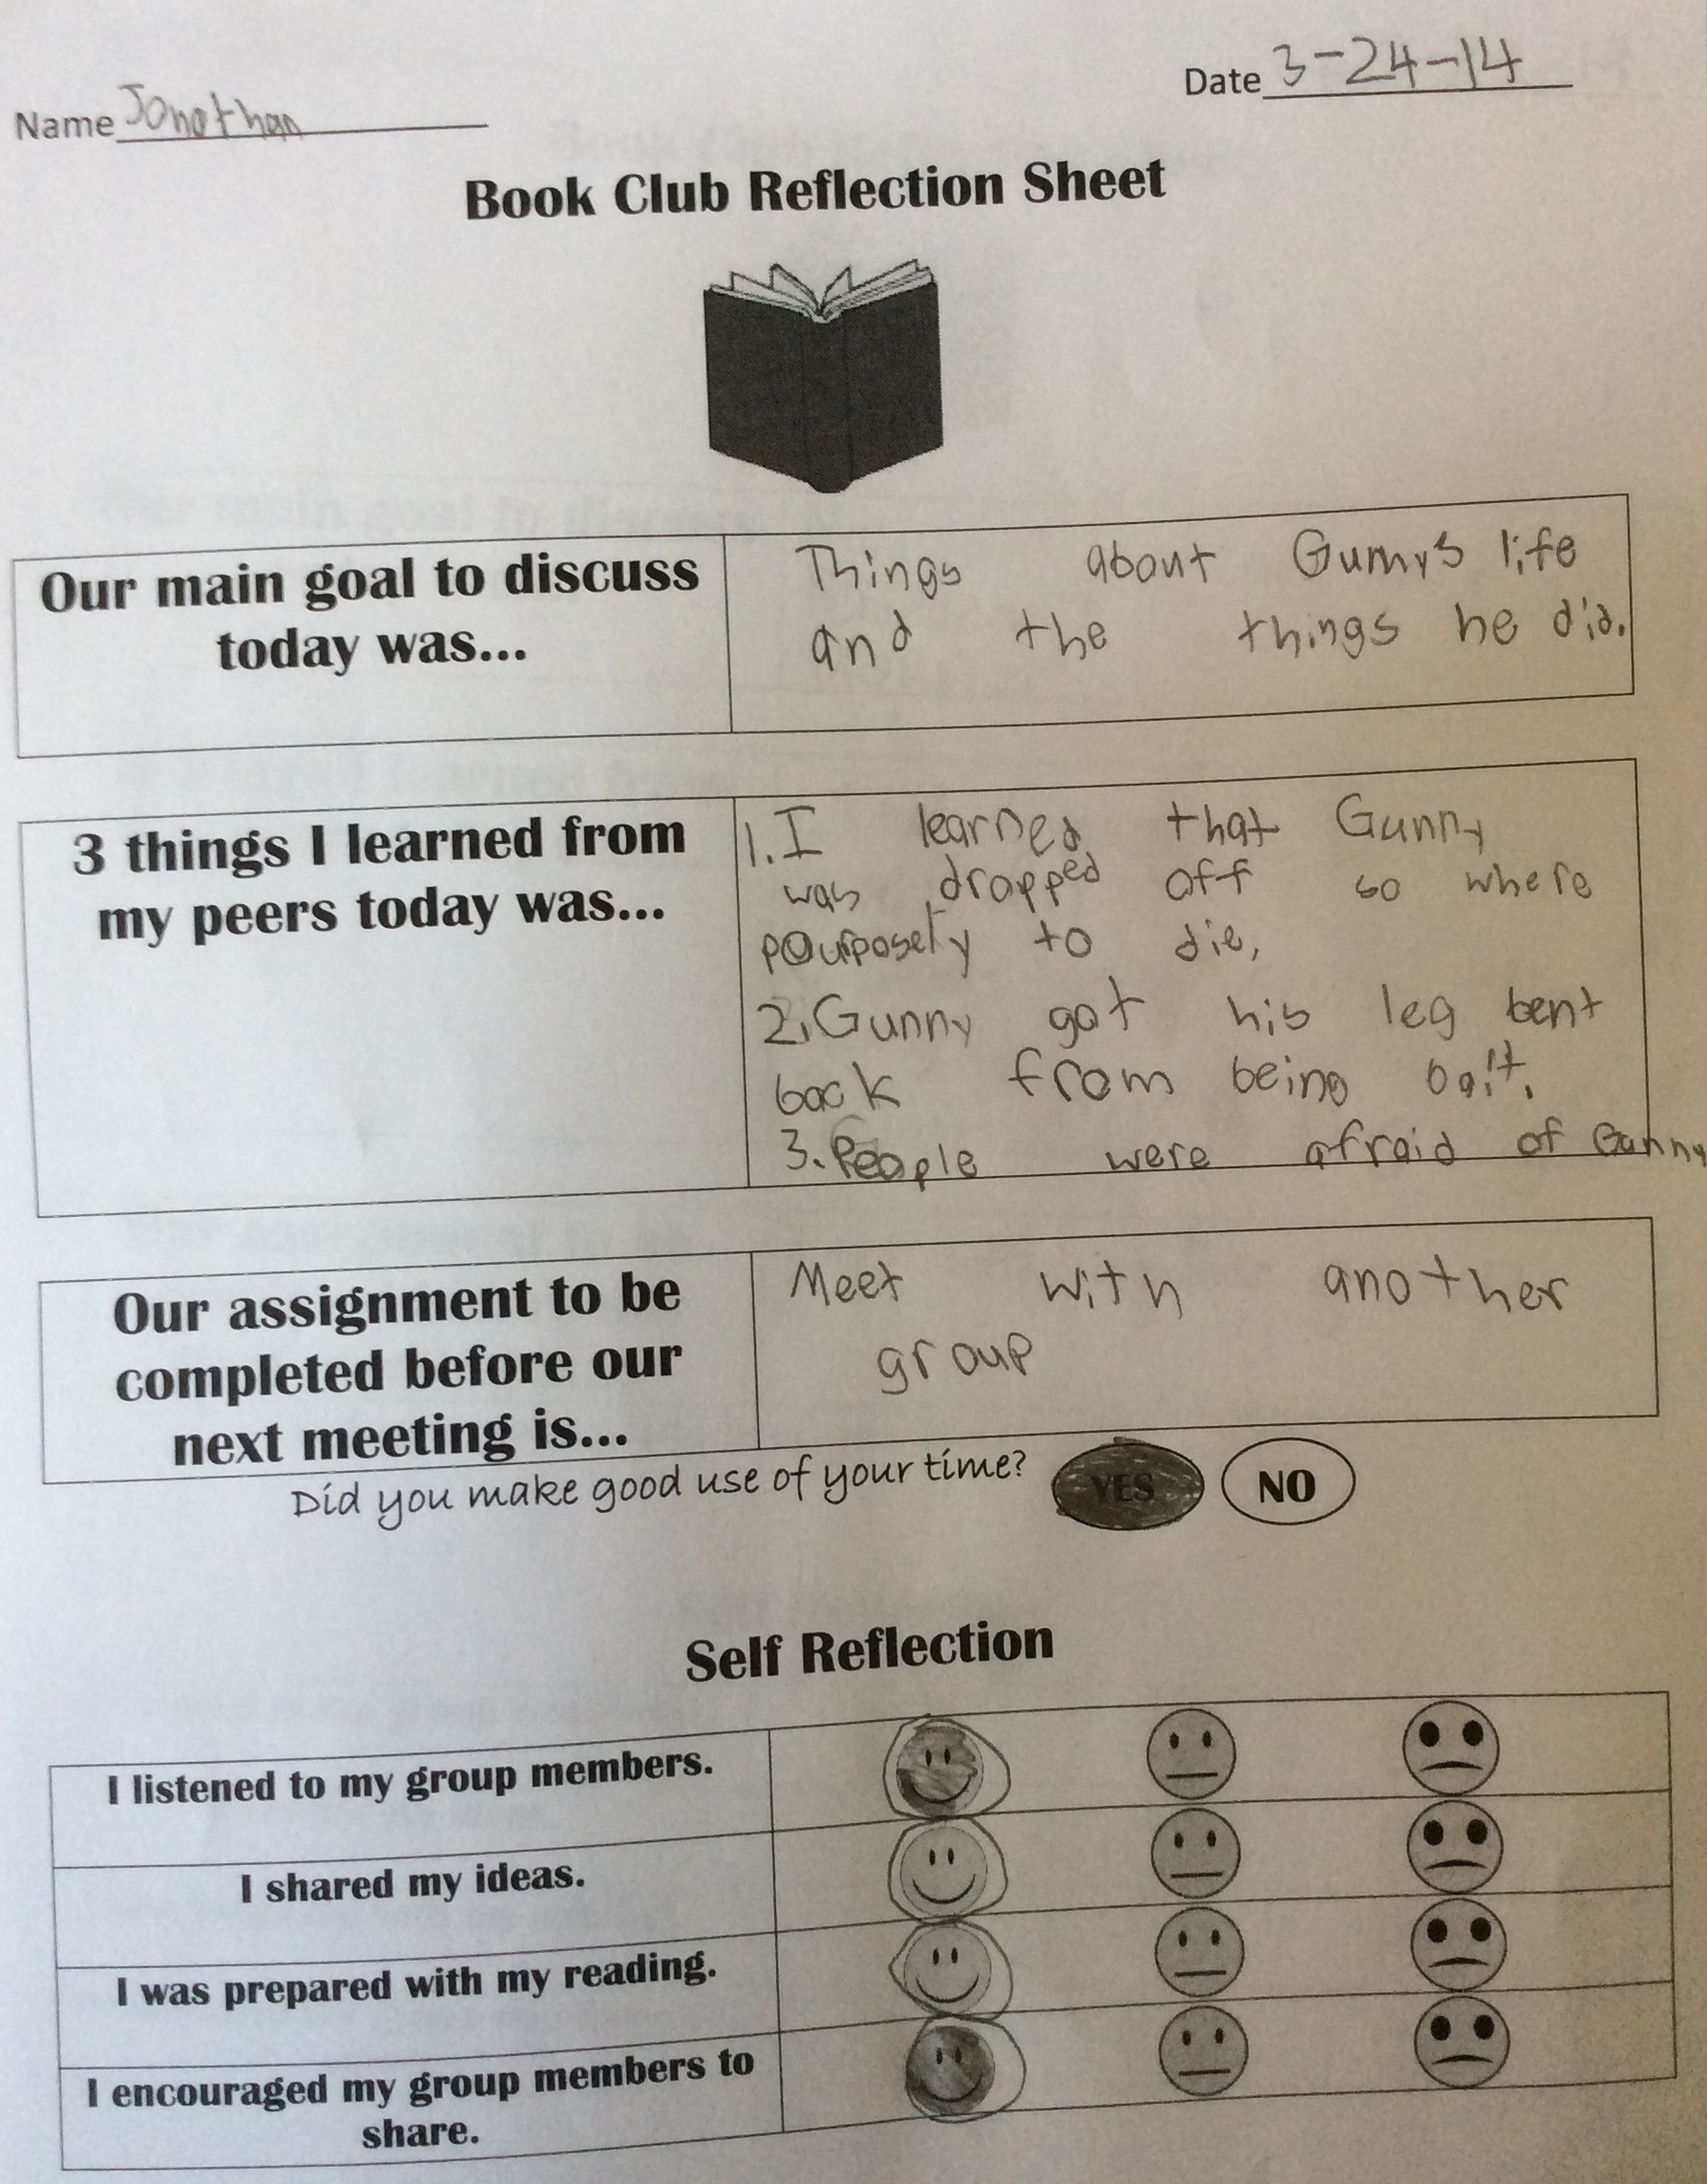 Name Jonathan
Date 3-24-14
Book Club Reflection Sheet
Our main goal to discuss
today was...
Things about Gumys life
and the things he did.
3 things I learned from
my peers today was...
1. I learned that Gunny
was dropped off so where
pourposely to die,
2. Gunny got his leg bent
back from being bait.
3. People were afraid of Gunny
Our assignment to be
completed before our
next meeting is...
Meet with another
group
Did you make good use of your time? YES NO
Self Reflection
I listened to my group members.
I shared my ideas.
I was prepared with my reading.
I encouraged my group members to
share.